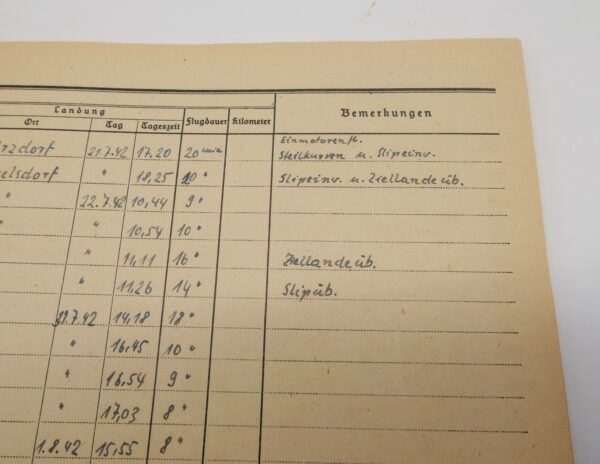 Landung
Ort Tag Tageszeit Flugdauer Kilometer Bemerkungen
Einmotorenfl.
rzdorf 21.7.42 17.20 20 min Steilkurven u. Slipeinw.
elsdorf " 18,25 10" Slipeinw. u. Ziellandeüb.
" 22.7.42 10,44 9"
" " 10,54 10"
" 11,11 16" Ziellandeüb.
" 11,26 14" Slipüb.
31.7.42 14,18 18"
" 16,45 10"
" 16,54 9"
" 17,03 8"
1.8.42 15,55 8"